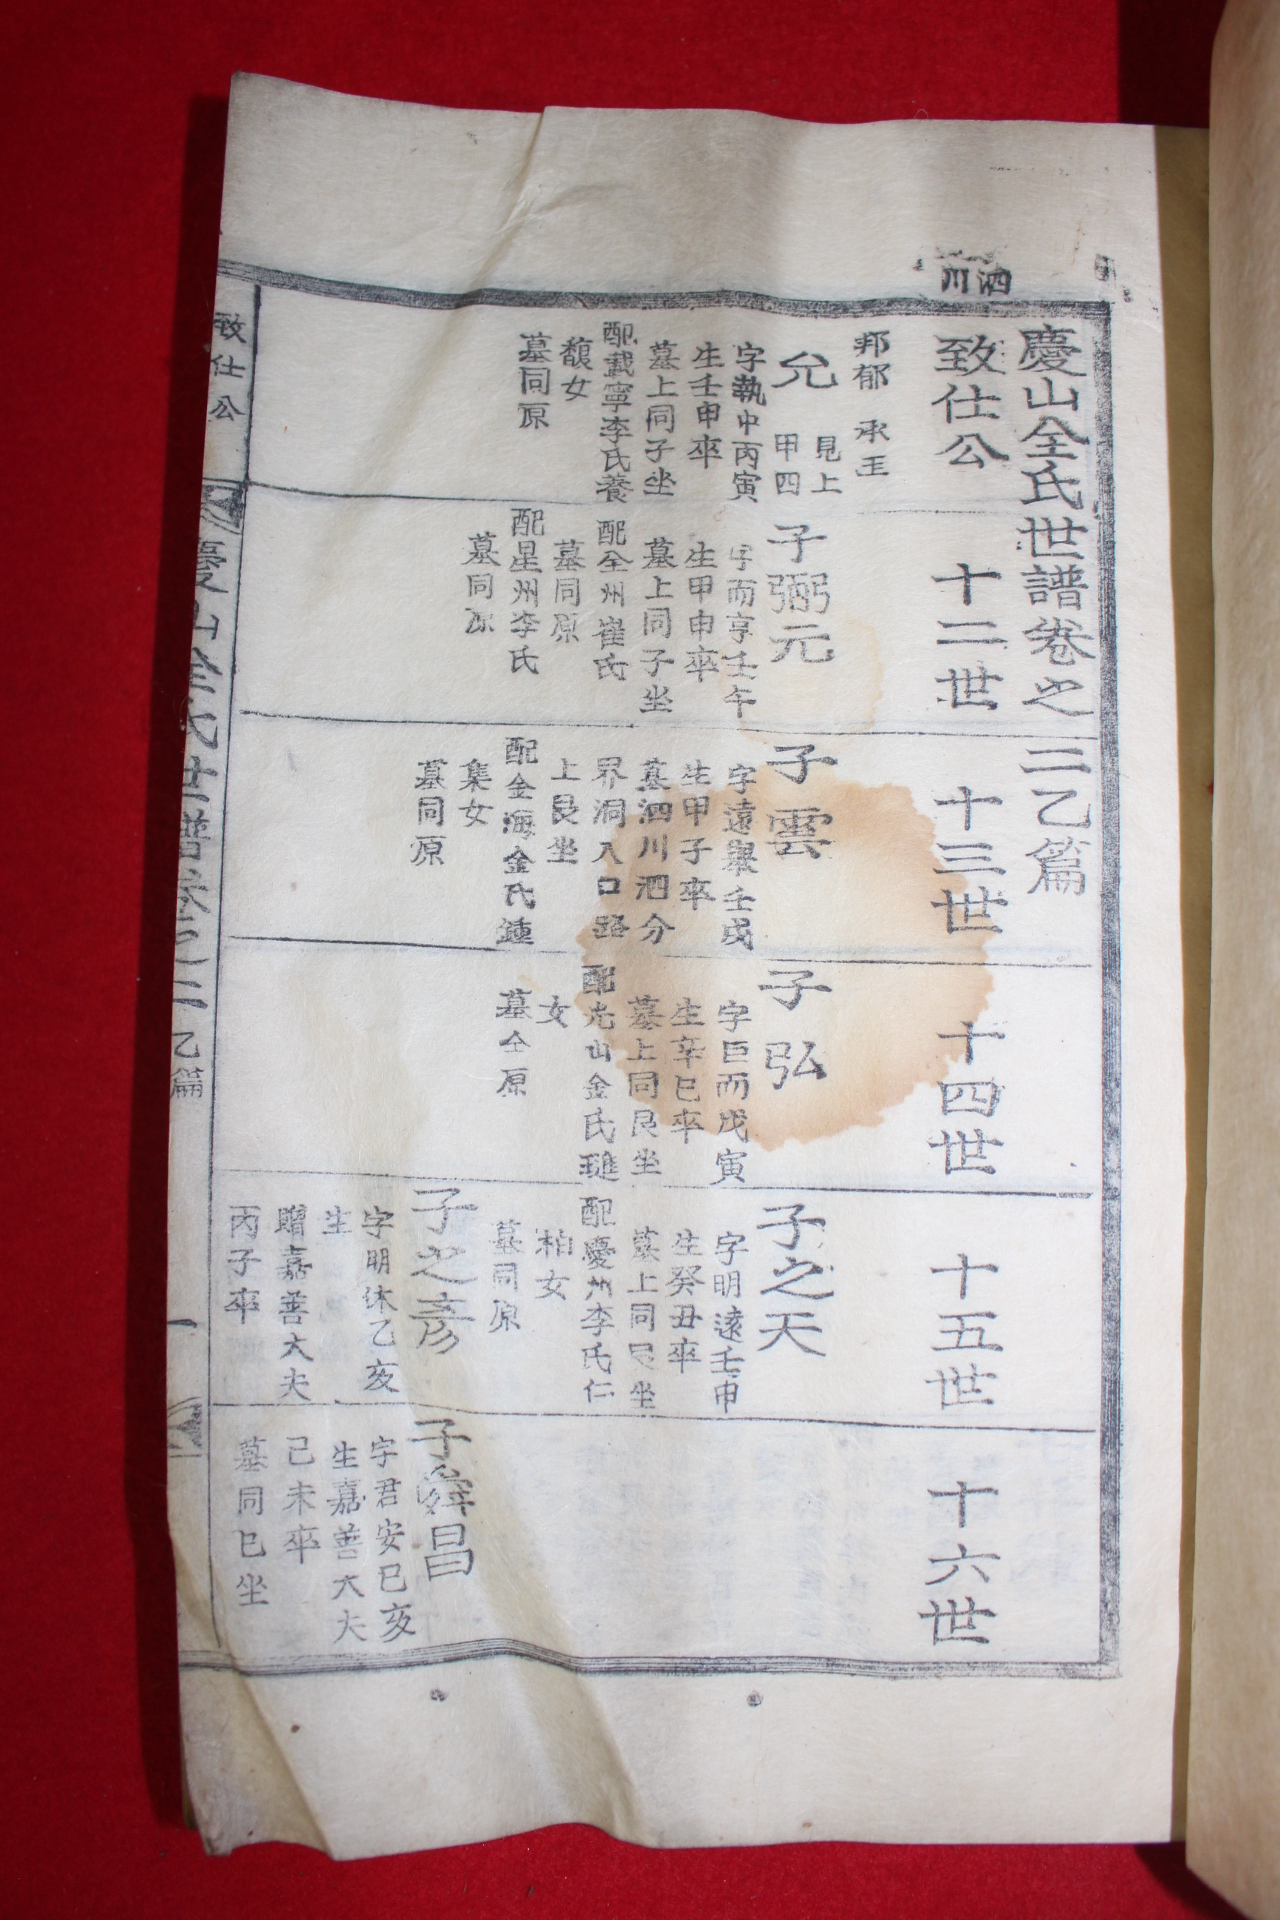 泗川
慶山全氏世譜卷之二乙篇
致仕公
十二世
十三世
十四世
十五世
十六世
邦郁 承王
允
見上
甲四
字執中丙寅
生壬申卒
墓上同子坐
配載寧李氏養
馥女
墓同原
子弼元
字而亨壬午
生甲申卒
墓上同子坐
配全州崔氏
墓同原
配星州李氏
墓同原
子雲
字遠擧壬戌
生甲子卒
墓泗川泗分
界洞入口路
上艮坐
配金海金氏鍾
集女
墓同原
子弘
字巨而戊寅
生辛巳卒
墓上同艮坐
配光山金氏璡
女
墓仝原
子之天
字明遠壬申
生癸丑卒
墓上同艮坐
配慶州李氏仁
柏女
墓同原
子之彦
字明休乙亥
生
贈嘉善大夫
丙子卒
子舜昌
字君安巳亥
生嘉善大夫
己未卒
墓同巳坐
致仕公
慶山全氏世譜卷之二
乙篇
一